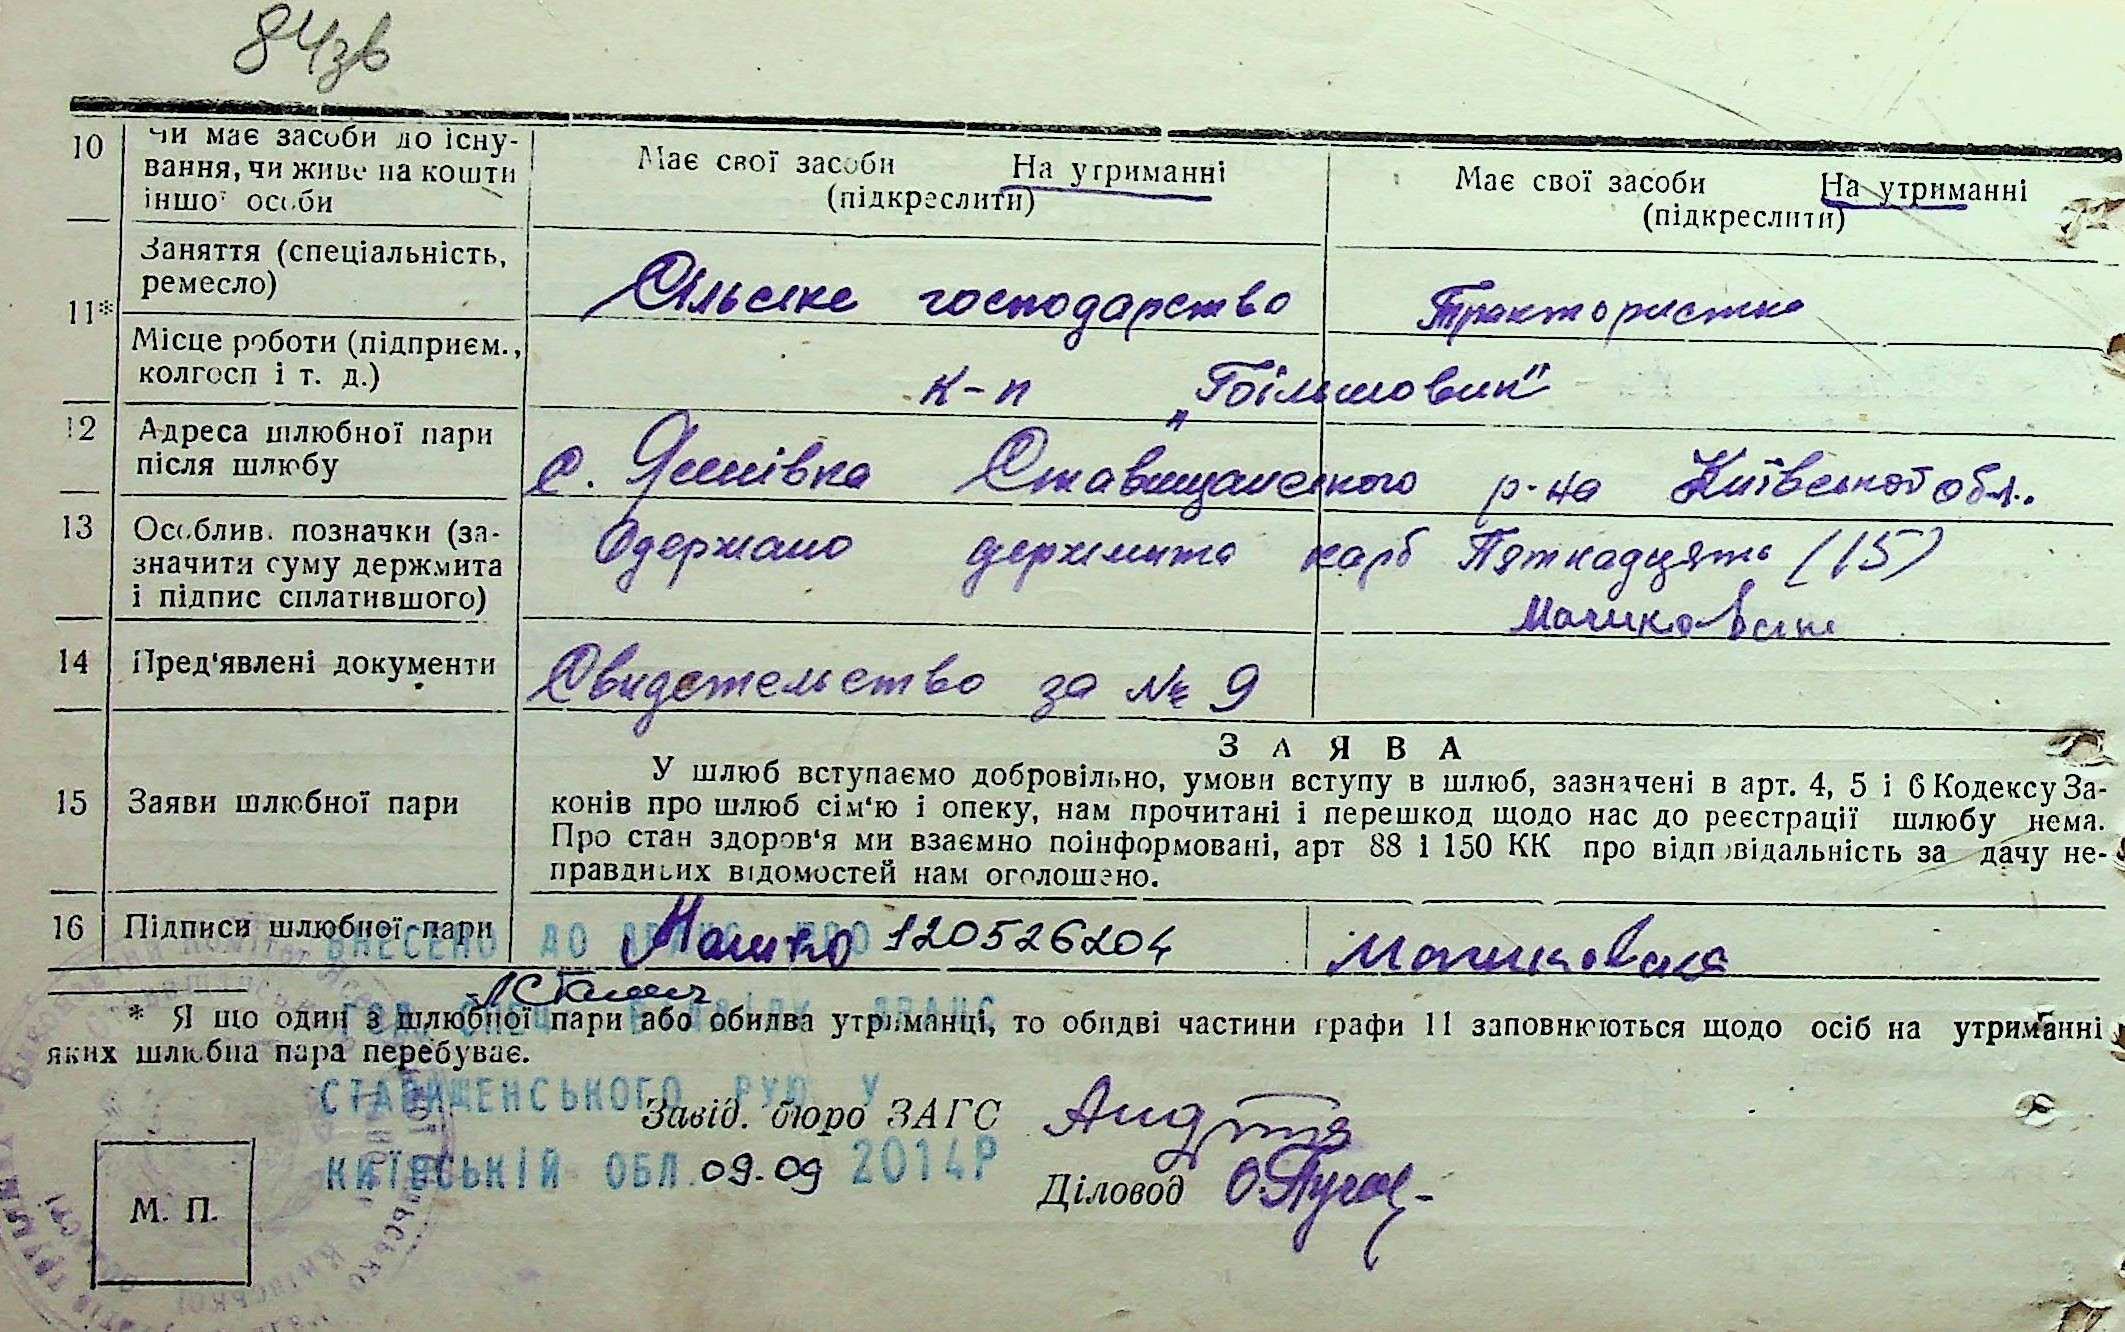 84зв
10 Чи має засоби до існу-
вання, чи живе на кошти
іншої особи
Має свої засоби На утриманні
(підкреслити)
Має свої засоби На утриманні
(підкреслити)
11*
Заняття (спеціальність,
ремесло)
Сільське господарство
Трактористка
Місце роботи (підприєм.,
колгосп і т. д.)
к-п „Більшовик"
12 Адреса шлюбної пари
після шлюбу
с. Ставищанського р-на Київської обл.
13 Особлив. позначки (за-
значити суму держмита
і підпис сплатившого)
Одержано держмита карб Пятнадцять (15)
14 Пред'явлені документи
Свидетельство за № 9
15 Заяви шлюбної пари
ЗАЯВА
У шлюб вступаємо добровільно, умови вступу в шлюб, зазначені в арт. 4, 5 і 6 Кодексу За-
конів про шлюб сім'ю і опеку, нам прочитані і перешкод щодо нас до реєстрації шлюбу нема.
Про стан здоров'я ми взаємно поінформовані, арт 88 і 150 КК про відповідальність за дачу не-
правдивих відомостей нам оголошено.
16 Підписи шлюбної пари
120526204
ВНЕСЕНО ДО
* Я що один з шлюбної пари або обидва утриманці, то обидві частини графи 11 заповнюються щодо осіб на утриманні
яких шлюбна пара перебуває.
СТАВИЩЕНСЬКОГО РУЮ У
Завід. бюро ЗАГС
КИЇВСЬКІЙ ОБЛ. 09.09 2014Р
Діловод
М. П.